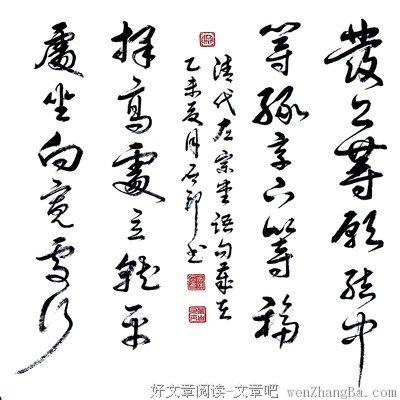 發上等願結中
等緣享下等福
清代左宗棠語句歲在
乙未夏月石书
擇高處立就平
處坐向寬處行
好文章阅读-文章吧
wenZhangBa.com